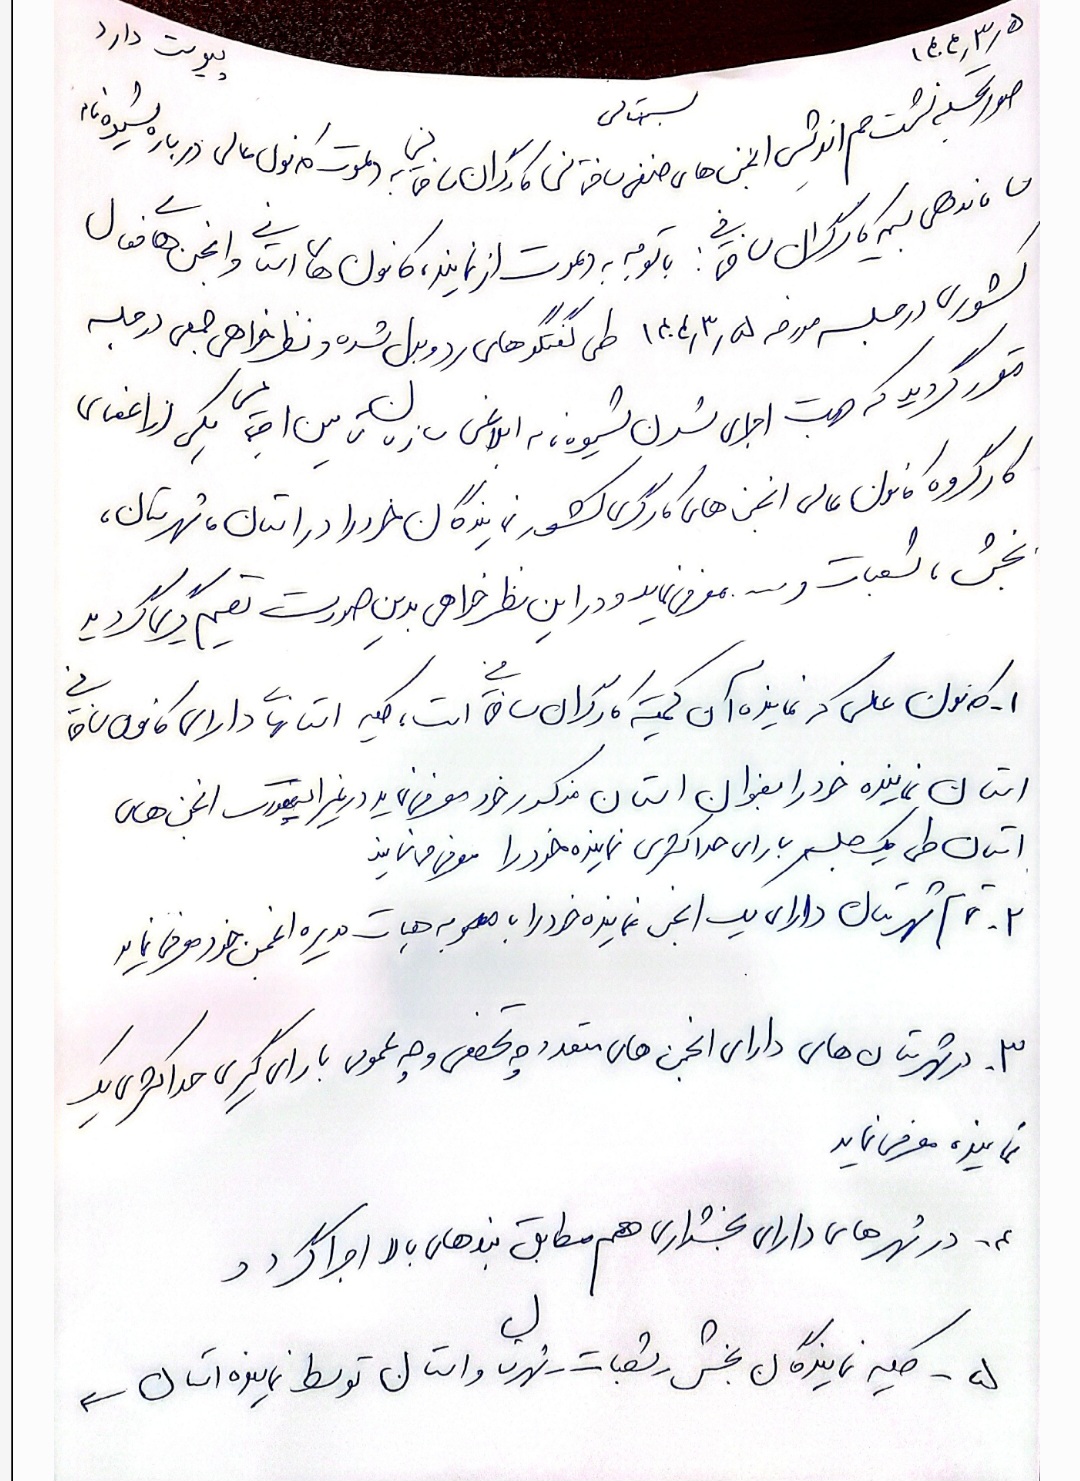 ۱۴۰۴٫۳٫۵
پیوست دارد
بسمتعالی
صورتجلسه نشست هم اندیشی انجمن های صنفی ساختمانی کارگران ساختمانی به دعوت کانون عالی درباره شیوه نامه
ساماندهی بیمه کارگران ساختمانی: با توجه به دعوت از نماینده کانون های استانی و انجمن های فعال
کشوری در جلسه مورخه ۱۴۰۴٫۳٫۵ طی گفتگوهای رد و بدل شده و نظرخواهی جمعی در جلسه
مقرر گردید که جهت اجرای شدن شیوه نامه ابلاغی سازمان تامین اجتماعی یکی از اعضای
کارگروه کانون عالی انجمن های کارگری کشور نمایندگان خود را در استان، شهرستان،
بخش، شعبات و ... معرفی نماید و در این نظرخواهی بدین صورت تصمیم گیری گردید
۱- کانون عالی که نماینده آن کمیته کارگران ساختمانی است، کلیه استانهای دارای کانون ساختمانی
استان نماینده خود را بعنوان استان مذکور خود معرفی نماید در غیر اینصورت انجمن های
استان طی یک جلسه با رای حداکثری نماینده خود را معرفی می نمایند
۲- تمام شهرستان دارای یک انجمن نماینده خود را با مصوبه هیات مدیره انجمن خود معرفی نماید
۳- در شهرستان های دارای انجمن های متعدد چه تخصصی و چه عمومی با رای گیری حداکثری یک
نماینده معرفی نماید
۴- در شهرهای دارای بخشداری هم مطابق بندهای بالا اجرا گردد
۵- کلیه نمایندگان بخش - شعبات - شهرستان و استان توسط نماینده استان